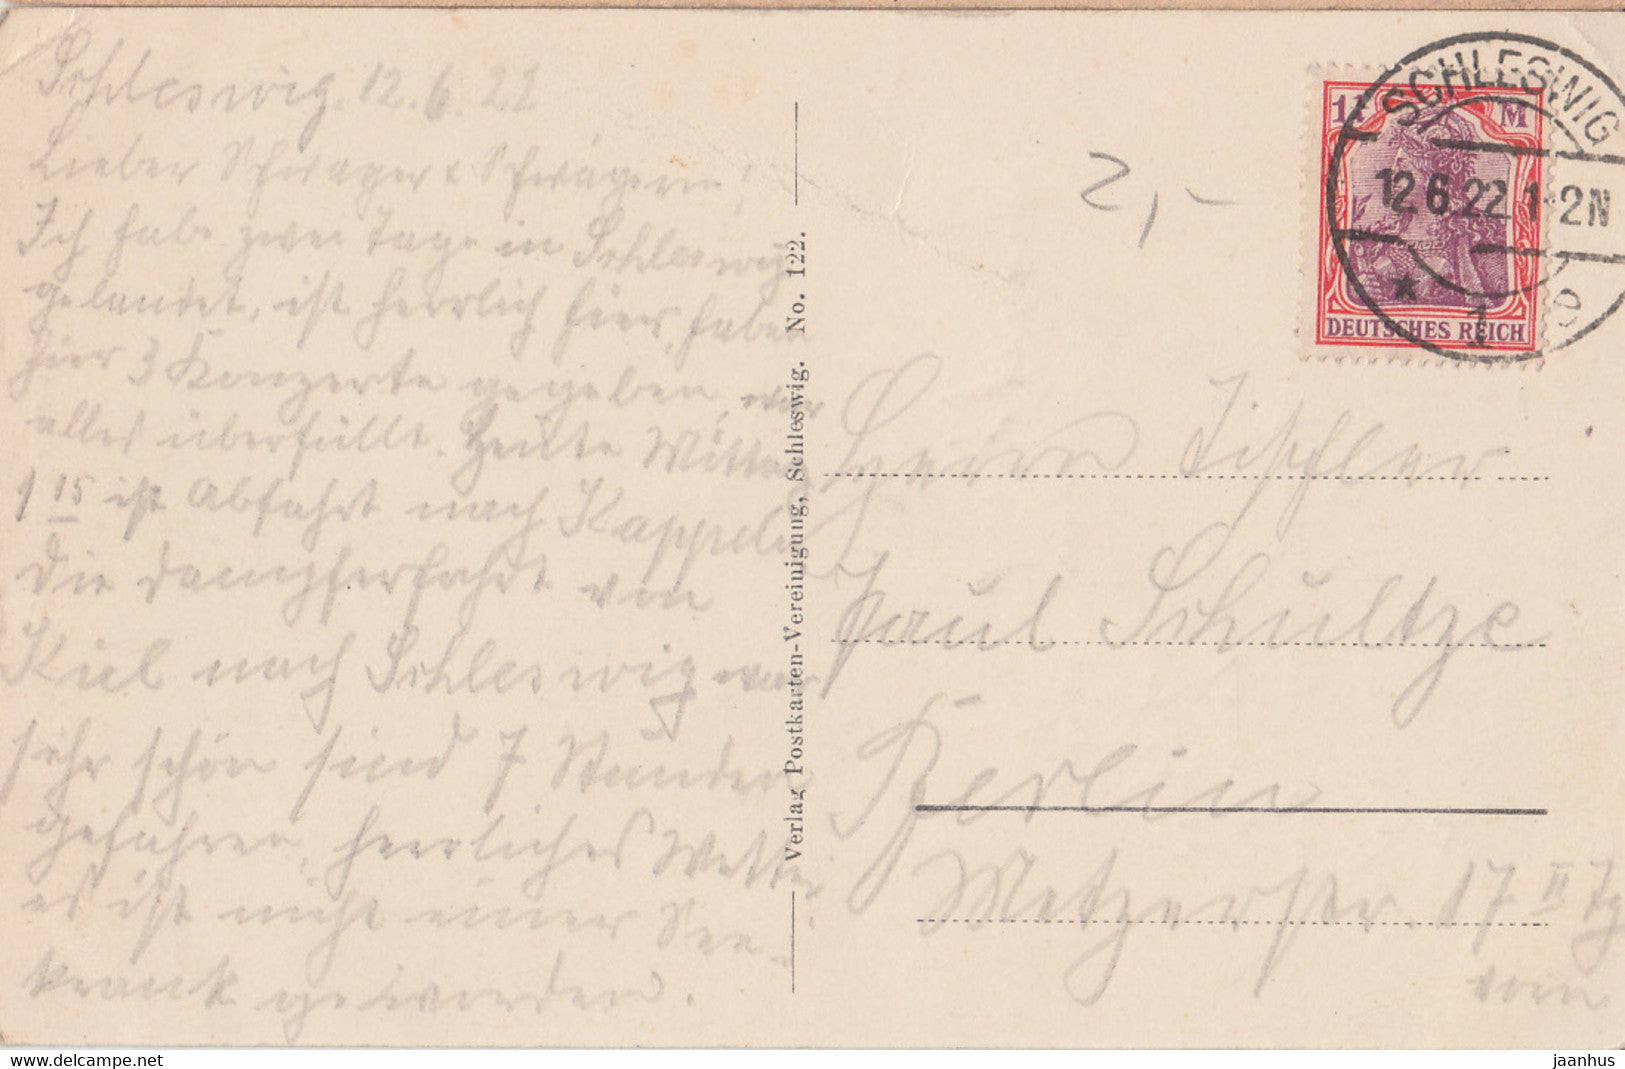 Schleswig. 12. 6. 22
Lieber Schwager & Schwägerin!
Ich habe zwei Tage in Schleswig
gelandet, ist herrlich hier, habe
hier 3 Konzerte gegeben, war
alles überfüllt. Heute Mittag
1 15 ist Abfahrt nach Kappeln
die Dampferfahrt von
Kiel nach Schleswig war
sehr schön sind 7 Stunden
gefahren, herrliches Wetter
es ist nicht einer See-
krank geworden.
Verlag Postkarten-Vereinigung, Schleswig. No. 122.
2,-
1¼ M
DEUTSCHES REICH
SCHLESWIG
12.6.22.1-2N
* 1
Herrn Tischler
Paul Schultze
Berlin
Metzerstr. 17 II
vorn
delcampe.net
jaanhus